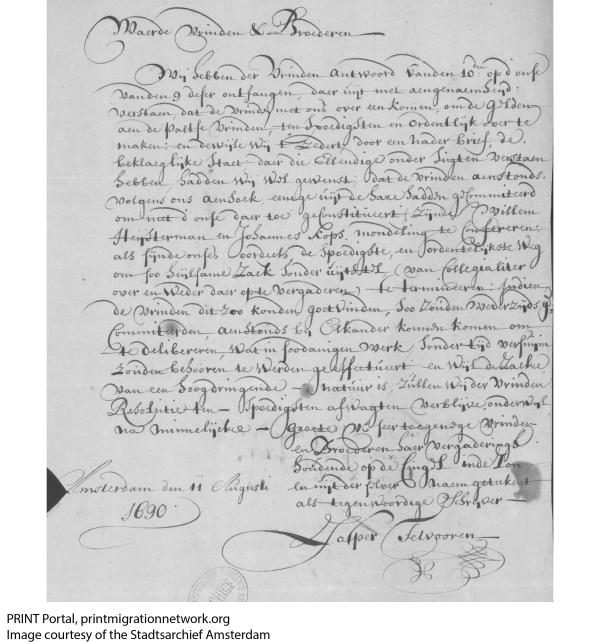 Waerde Vrinden & Broederen
Wij hebben der Vrinden Antwoord vanden 10den op d'onse
vanden 9 deser ontfangen, daer uijt met aengenaemheijd
verstaen, dat de vrinden met ons over een komen, om de Gelden
aen de Paltse Vrinden, ten spoedigsten en ordentlijk over te
maken: en dewijle wij t' Zedert, door een nader brief, de
beklaeglijke staet daer die Ellendige onder sugten verstaen
hebben hadden wij wel gewenst, dat de vrinden aenstonds
volgens ons aensoek, eenige uijt de hare hadden gecommiteerd
om met d'onse daer toe geconstitueert (zijnde Willem
Heijsterman en Johannes Kops, mondeling te confereren:
als sijnde onses oordeels, de spoedigste, en ordentelijkste weg
om soo heijlsame zaek sonder uijtstel (van Collegialiter
over en weder daer op te vergaderen) te termineren: Indien
de Vrinden dit zoo konden goetvinden, soo zouden wederzijds ge
Committeerden, aenstonds bij Elkander konnen komen om
te delibereren, wat in soodanigen werk, sonder tijd versuijm
zouden behooren te werden geeffectueert en wijl de zacke
van een hoogdringende natuur is, zullen wij der vrinden
Resolutie ten spoedigsten afwagten verblijve onderwijl
na minnelijcke Groete UE seer toegenege Vrinden
en Broederen haer vergadering
houdende op de Cingel inde Zon
en uijt der selver Naem getekent
als tegenwoordige Schrijver
Amsterdam den 11 Augusti
1690
Jasper
PRINT Portal, printmigrationnetwork.org
Image courtesy of the Stadtsarchief Amsterdam